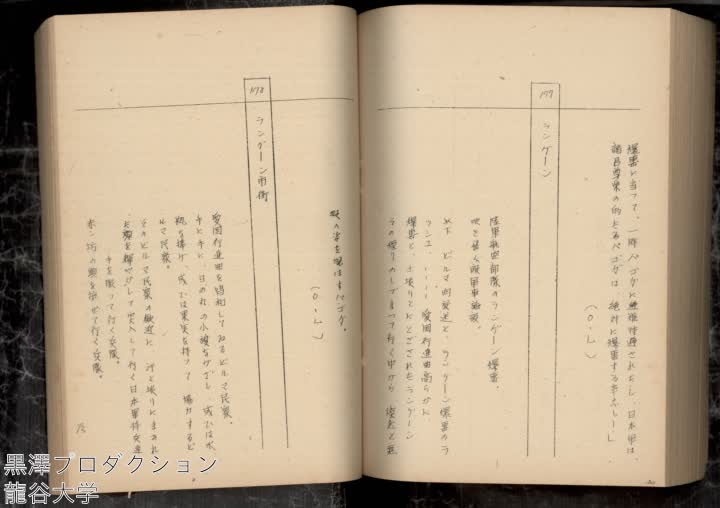 爆撃に当つて、一際パゴダに避難待避されたし、日本軍は、
諸君尊崇の的たるパゴダは、絶対に爆撃する事なし！」
（O・L）
177
ラングーン
陸軍航空部隊のラングーン爆撃。
吹き飛ぶ敵軍事施設。
以下、ビルマ的交通と、ラングーン爆撃のラ
ッシュ、‥‥愛国行進曲高らかに
爆撃と、土埃りにとざされたラングーン
その煙りのしずまつて行く中から
姿を現はすパゴダ。
（O・L）
178
ラングーン市街
愛国行進曲を唱和してゐるビルマ民衆。
手に手に、日の丸の小旗をかざし、或ひは水
瓶を捧げ、或ひは果実を持つて協力するビ
ルマ民衆。
そのビルマ民衆の歓迎に、汗と埃りにまみれ
た顔を輝やかして突入して行く日本軍将兵達
手を振つて行く兵隊。
赤ン坊の頭を撫ぜて行く兵隊。
黒澤プロダクション
龍谷大学